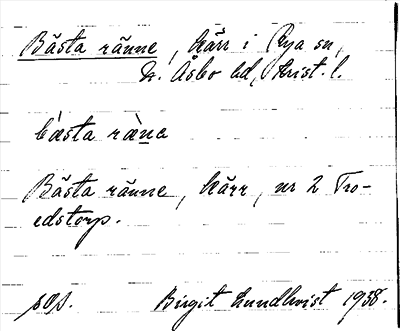 Bästa ränne, kärr i Rya sn,
N. Åsbo hd, Krist. l.
bästa ràna
Bästa ränne, kärr, nr 2 Tro-
edstorp.
Birgit Lundkvist 1938.